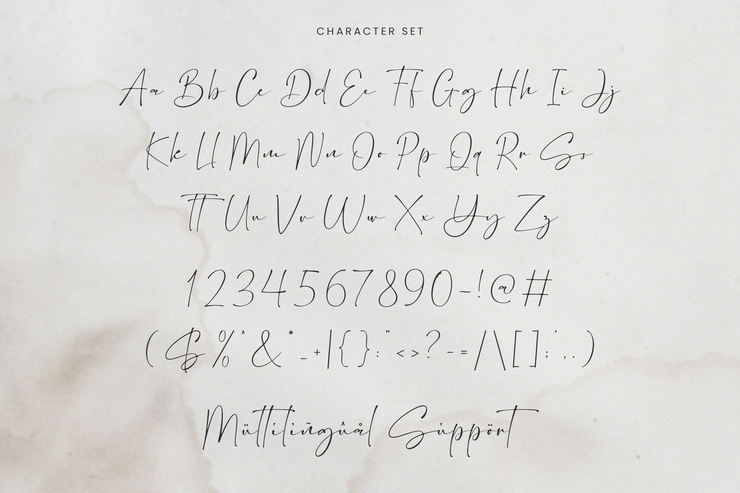 CHARACTER SET
Aa Bb Cc Dd Ee Ff Gg Hh Ii Jj
Kk Ll Mm Nn Oo Pp Qq Rr Ss
Tt Uu Vv Ww Xx Yy Zz
1234567890-!@#
($%^&*_+|{}:"<>?-=/\[]:',.)
Müttiliñgûàl Súppört